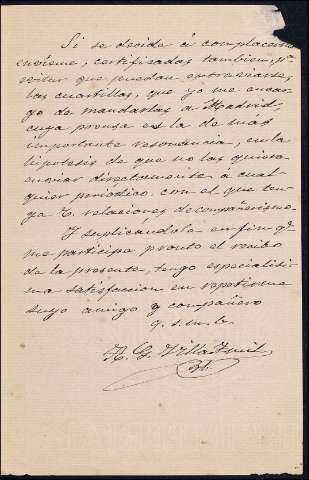 Si se decide á complacerme
envieme, certificadas tambien, pª
evitar que puedan extraviarse,
las cuartillas, que yo me encar-
go de mandarlas a Madrid,
cuya prensa es la de más
importante resonancia, en la
hipótesis de que no las quiera
enviar directamente á cual-
quier periódico con el que ten-
ga V. relaciones de compañerismo.
Y suplicándole en fin qe
me participe pronto el recibo
de la presente, tengo especialísi-
ma satisfaccion en repetirme
suyo amigo y compañero
q. s. m. b.